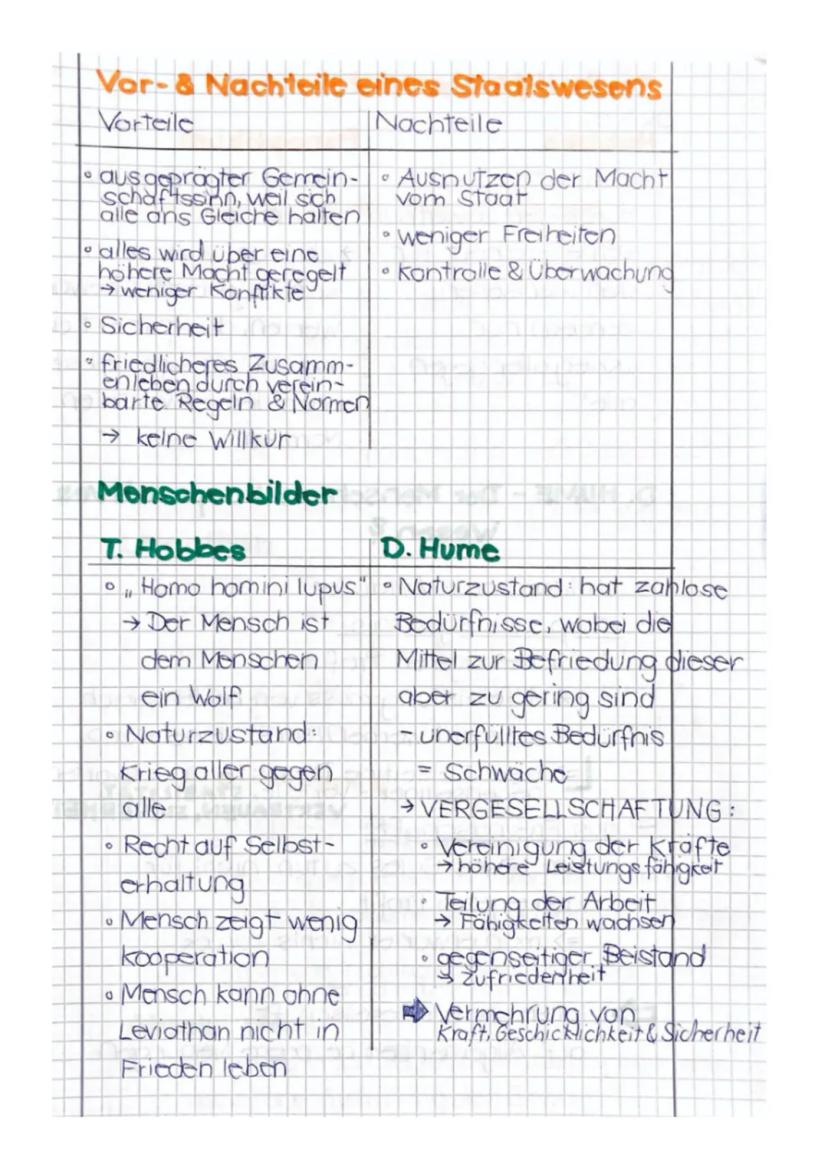 Vor- & Nachteile eines Staatswesens
Vorteile
Nachteile
• ausgeprägter Gemein-
schaftssinn, weil sich
alle ans Gleiche halten
• alles wird über eine
höhere Macht geregelt
→ weniger Konflikte
• Sicherheit
• friedlicheres Zusamm-
enleben durch verein-
barte Regeln & Normen
→ keine Willkür
• Ausnutzen der Macht
vom Staat
• weniger Freiheiten
• Kontrolle & Überwachung
Menschenbilder
T. Hobbes
• „Homo homini lupus"
→ Der Mensch ist
dem Menschen
ein Wolf
• Naturzustand:
Krieg aller gegen
alle
• Recht auf Selbst-
erhaltung
• Mensch zeigt wenig
Kooperation
• Mensch kann ohne
Leviathan nicht in
Frieden leben
D. Hume
• Naturzustand: hat zahlose
Bedürfnisse, wobei die
Mittel zur Befriedung dieser
aber zu gering sind
- unerfülltes Bedürfnis
= Schwäche
→ VERGESELLSCHAFTUNG:
• Vereinigung der Kräfte
→ höhere Leistungsfähigkeit
• Teilung der Arbeit
→ Fähigkeiten wachsen
• gegenseitiger Beistand
→ Zufriedenheit
➡ Vermehrung von
Kraft, Geschicklichkeit & Sicherheit